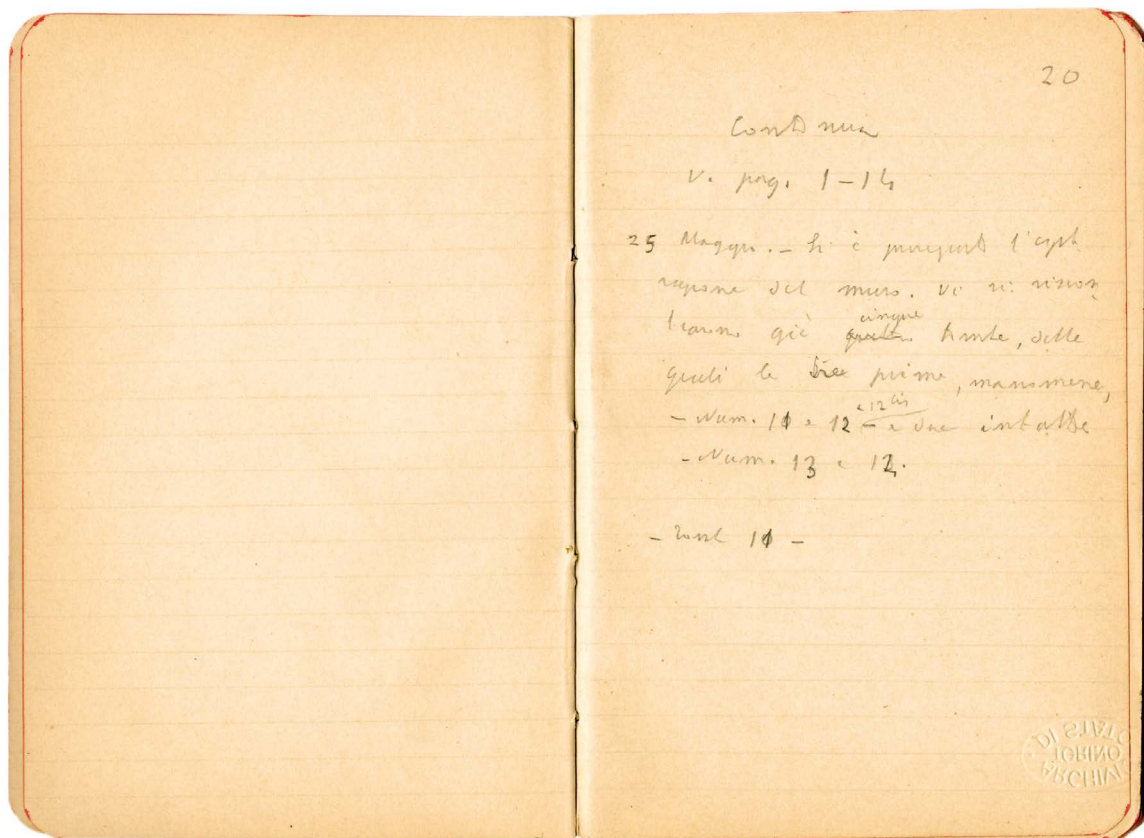 20
Continua
v. pag. 1-14
25 Maggio. - Si è proseguito l'esplo
razione del muro. Vi si riscon
trarono già cinque tombe, delle
quali le tre prime, manomesse,
- Num. 11 e 12 e 12 bis - e due intatte
- Num. 13 e 14.
- Tomb 11 -
ARCHIVI
TORINO
DI STATO